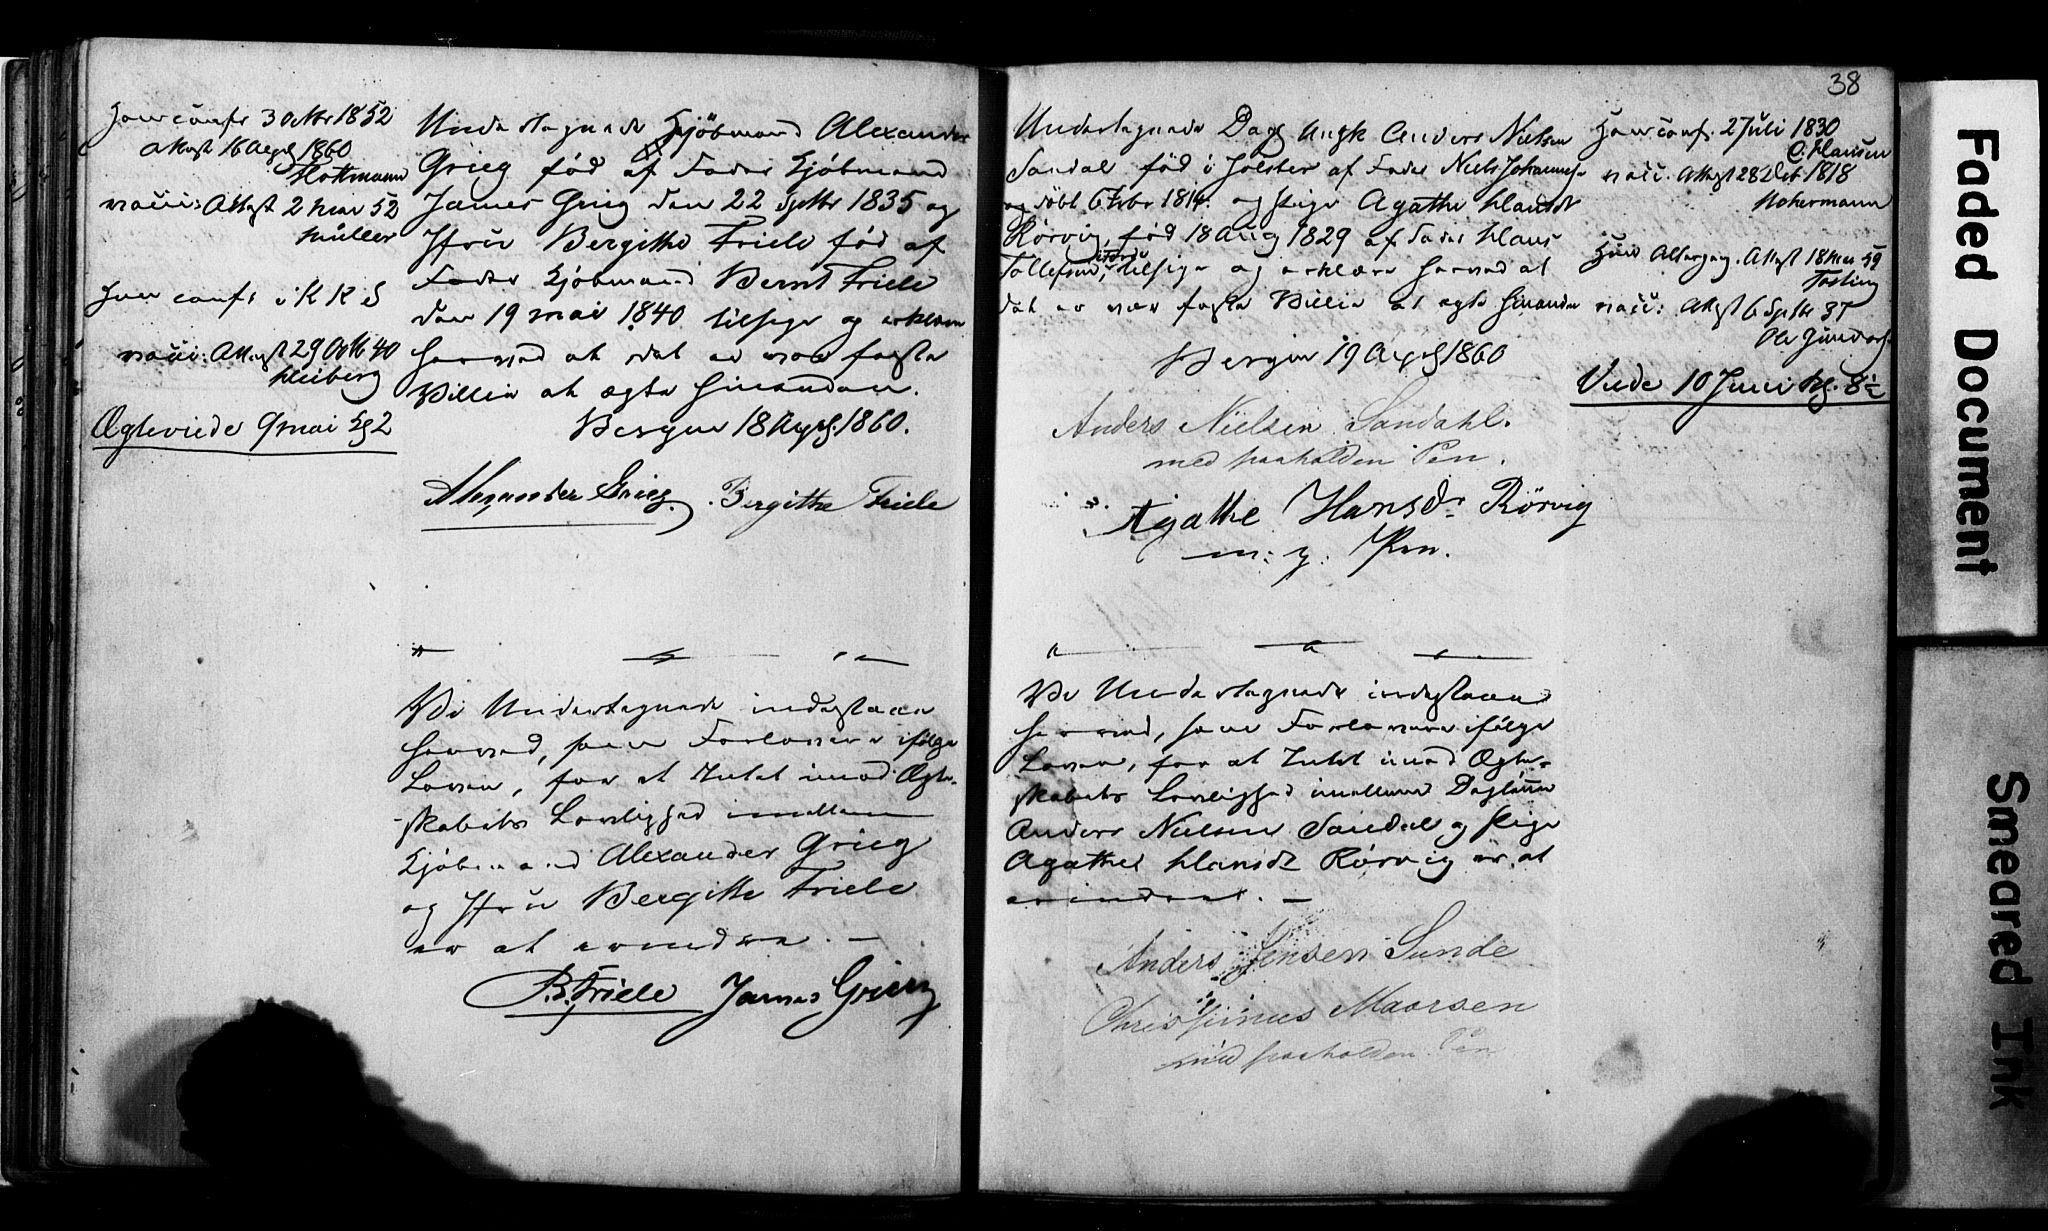 Han conf. 3 Oktbr 1852
Attest 16 April 1860
vacc: Attest 2 mai 52
Müller
Hun conf. i K K S
vacc: Attest 29 Oktb 40
Heiberg
Ægteviede 9 mai Kl 2
Undertegnede Kjøbmand Alexander
Grieg fød af Fader Kjøbmand
James Grieg den 22 Septbr 1835 og
Jfru Bergithe Friele fød af
Fader Kjøbmand Bernt Friele
den 19 mai 1840 tilsige og erklære
herved at det er vor faste
Villie at ægte hinanden.
Bergen 18 April 1860.
Alexander Grieg. Bergitha Friele
Vi Undertegnede indestaae
herved, som Forlovere ifølge
Loven, for at Intet imod Ægte-
skabets Lovlighed imellem
Kjøbmand Alexander Grieg
og Jfru Bergithe Friele
er at erindre. —
B. Friele James Grieg
38
Undertegnede Dag Ungk Anders Nielsen
Sandal fød i Jølster af Fader Niels Johannes-
og døbt 6 Febr 1814. og Pige Agathe Hansdt
Rørvig, fød 18 Aug 1829 af Fader Hans
Tollefsen, tilsige og erklære herved at
det er vor faste Villie at ægte hinanden
Bergen 19 April 1860
Anders Nielsen Sandahl.
med paaholden Pen.
Agathe Hansdr Rørvig
m: p: Pen.
Vi Undertegnede indestaae
herved, som Forlovere ifølge
Loven, for at Intet imod Ægte-
skabets Lovlighed imellem Dagleier
Anders Nielsen Sandal og Pige
Agathe Hansdt Rørvig er at
erindre. —
Anders Jensen Sunde
Maarsen
med paaholden Pen
Han conf. 2 Juli 1830
C. Hansen
vacc. Attest 28 1818
Hun Altergang. Attest 18 59
vacc: Attest 6 Septbr 37
Ole
Viede 10 Juni Kl. 8½
Faded Document
Smeared Ink